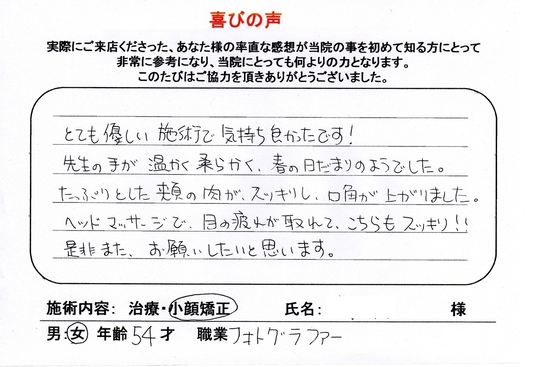 喜びの声
実際にご来店くださった、あなた様の率直な感想が当院の事を初めて知る方にとって
非常に参考になり、当院にとっても何よりの力となります。
このたびはご協力を頂きありがとうございました。
とても優しい施術で気持ち良かったです!
先生の手が温かく柔らかく、春の日だまりのようでした。
たっぷりとした頬の肉が、スッキリし、口角が上がりました。
ヘッドマッサージで、目の疲れが取れて、こちらもスッキリ!!
是非また、お願いしたいと思います。
施術内容: 治療・小顔矯正 氏名: 様
男:女 年齢54才 職業フォトグラファー